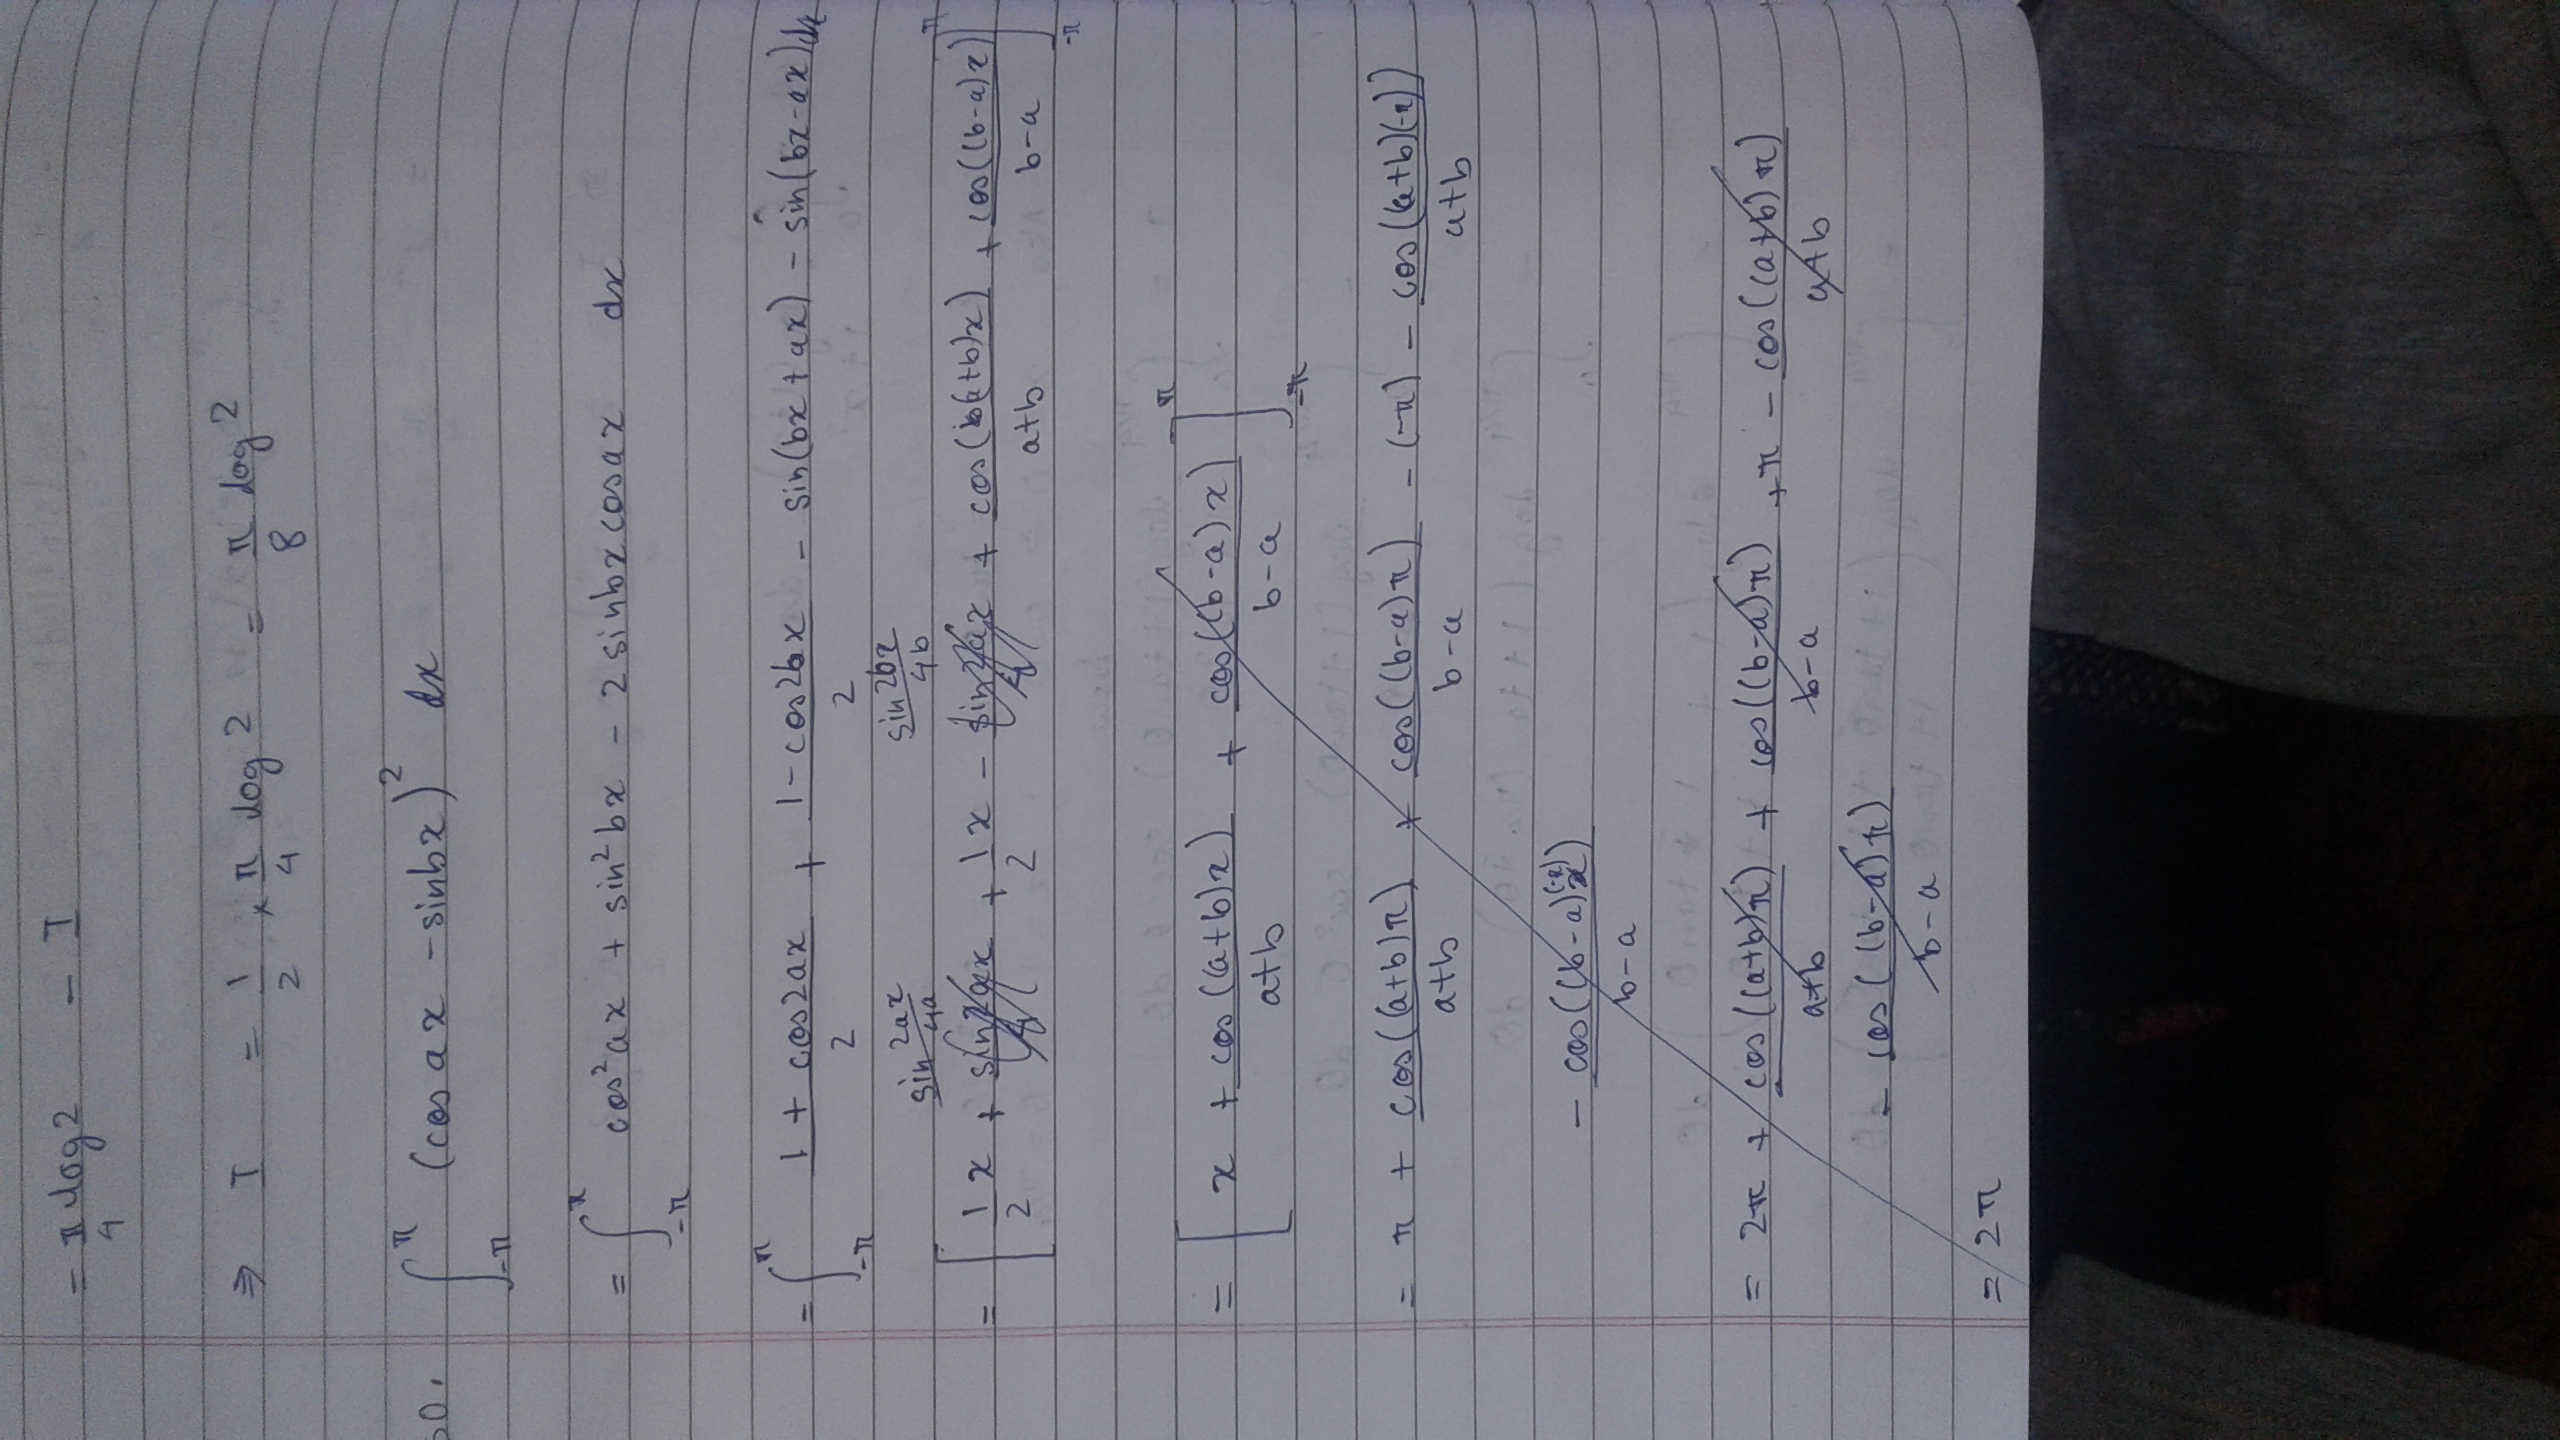 = π/4 log2 - I
⇒ I = 1/2 × π/4 log 2 = π/8 log 2
0. ∫_{-π}^{π} (cos ax - sinbx)² dx
= ∫_{-π}^{π} cos²ax + sin²bx - 2 sinbx cosax dx
= ∫_{-π}^{π} (1 + cos2ax)/2 + (1 - cos2bx)/2 - sin(bx + ax) - sin(bx-ax)dx
sin 2ax/4a sin2bx/4b
= [1/2 x + sin2ax/4 + 1/2 x - sin2ax/4 + cos((a+b)x)/(a+b) + cos((b-a)x)/(b-a)]_{-π}^{π}
= [x + cos((a+b)x)/(a+b) + cos((b-a)x)/(b-a)]_{-π}^{π}
= π + cos((a+b)π)/(a+b) + cos((b-a)π)/(b-a) - (-π) - cos((a+b)(-π))/(a+b)
- cos((b-a)(-π))/(b-a)
= 2π + cos((a+b)π)/(a+b) + cos((b-a)π)/(b-a) + π - cos((a+b)π)/(a+b)
- cos((b-a)π)/(b-a)
= 2π